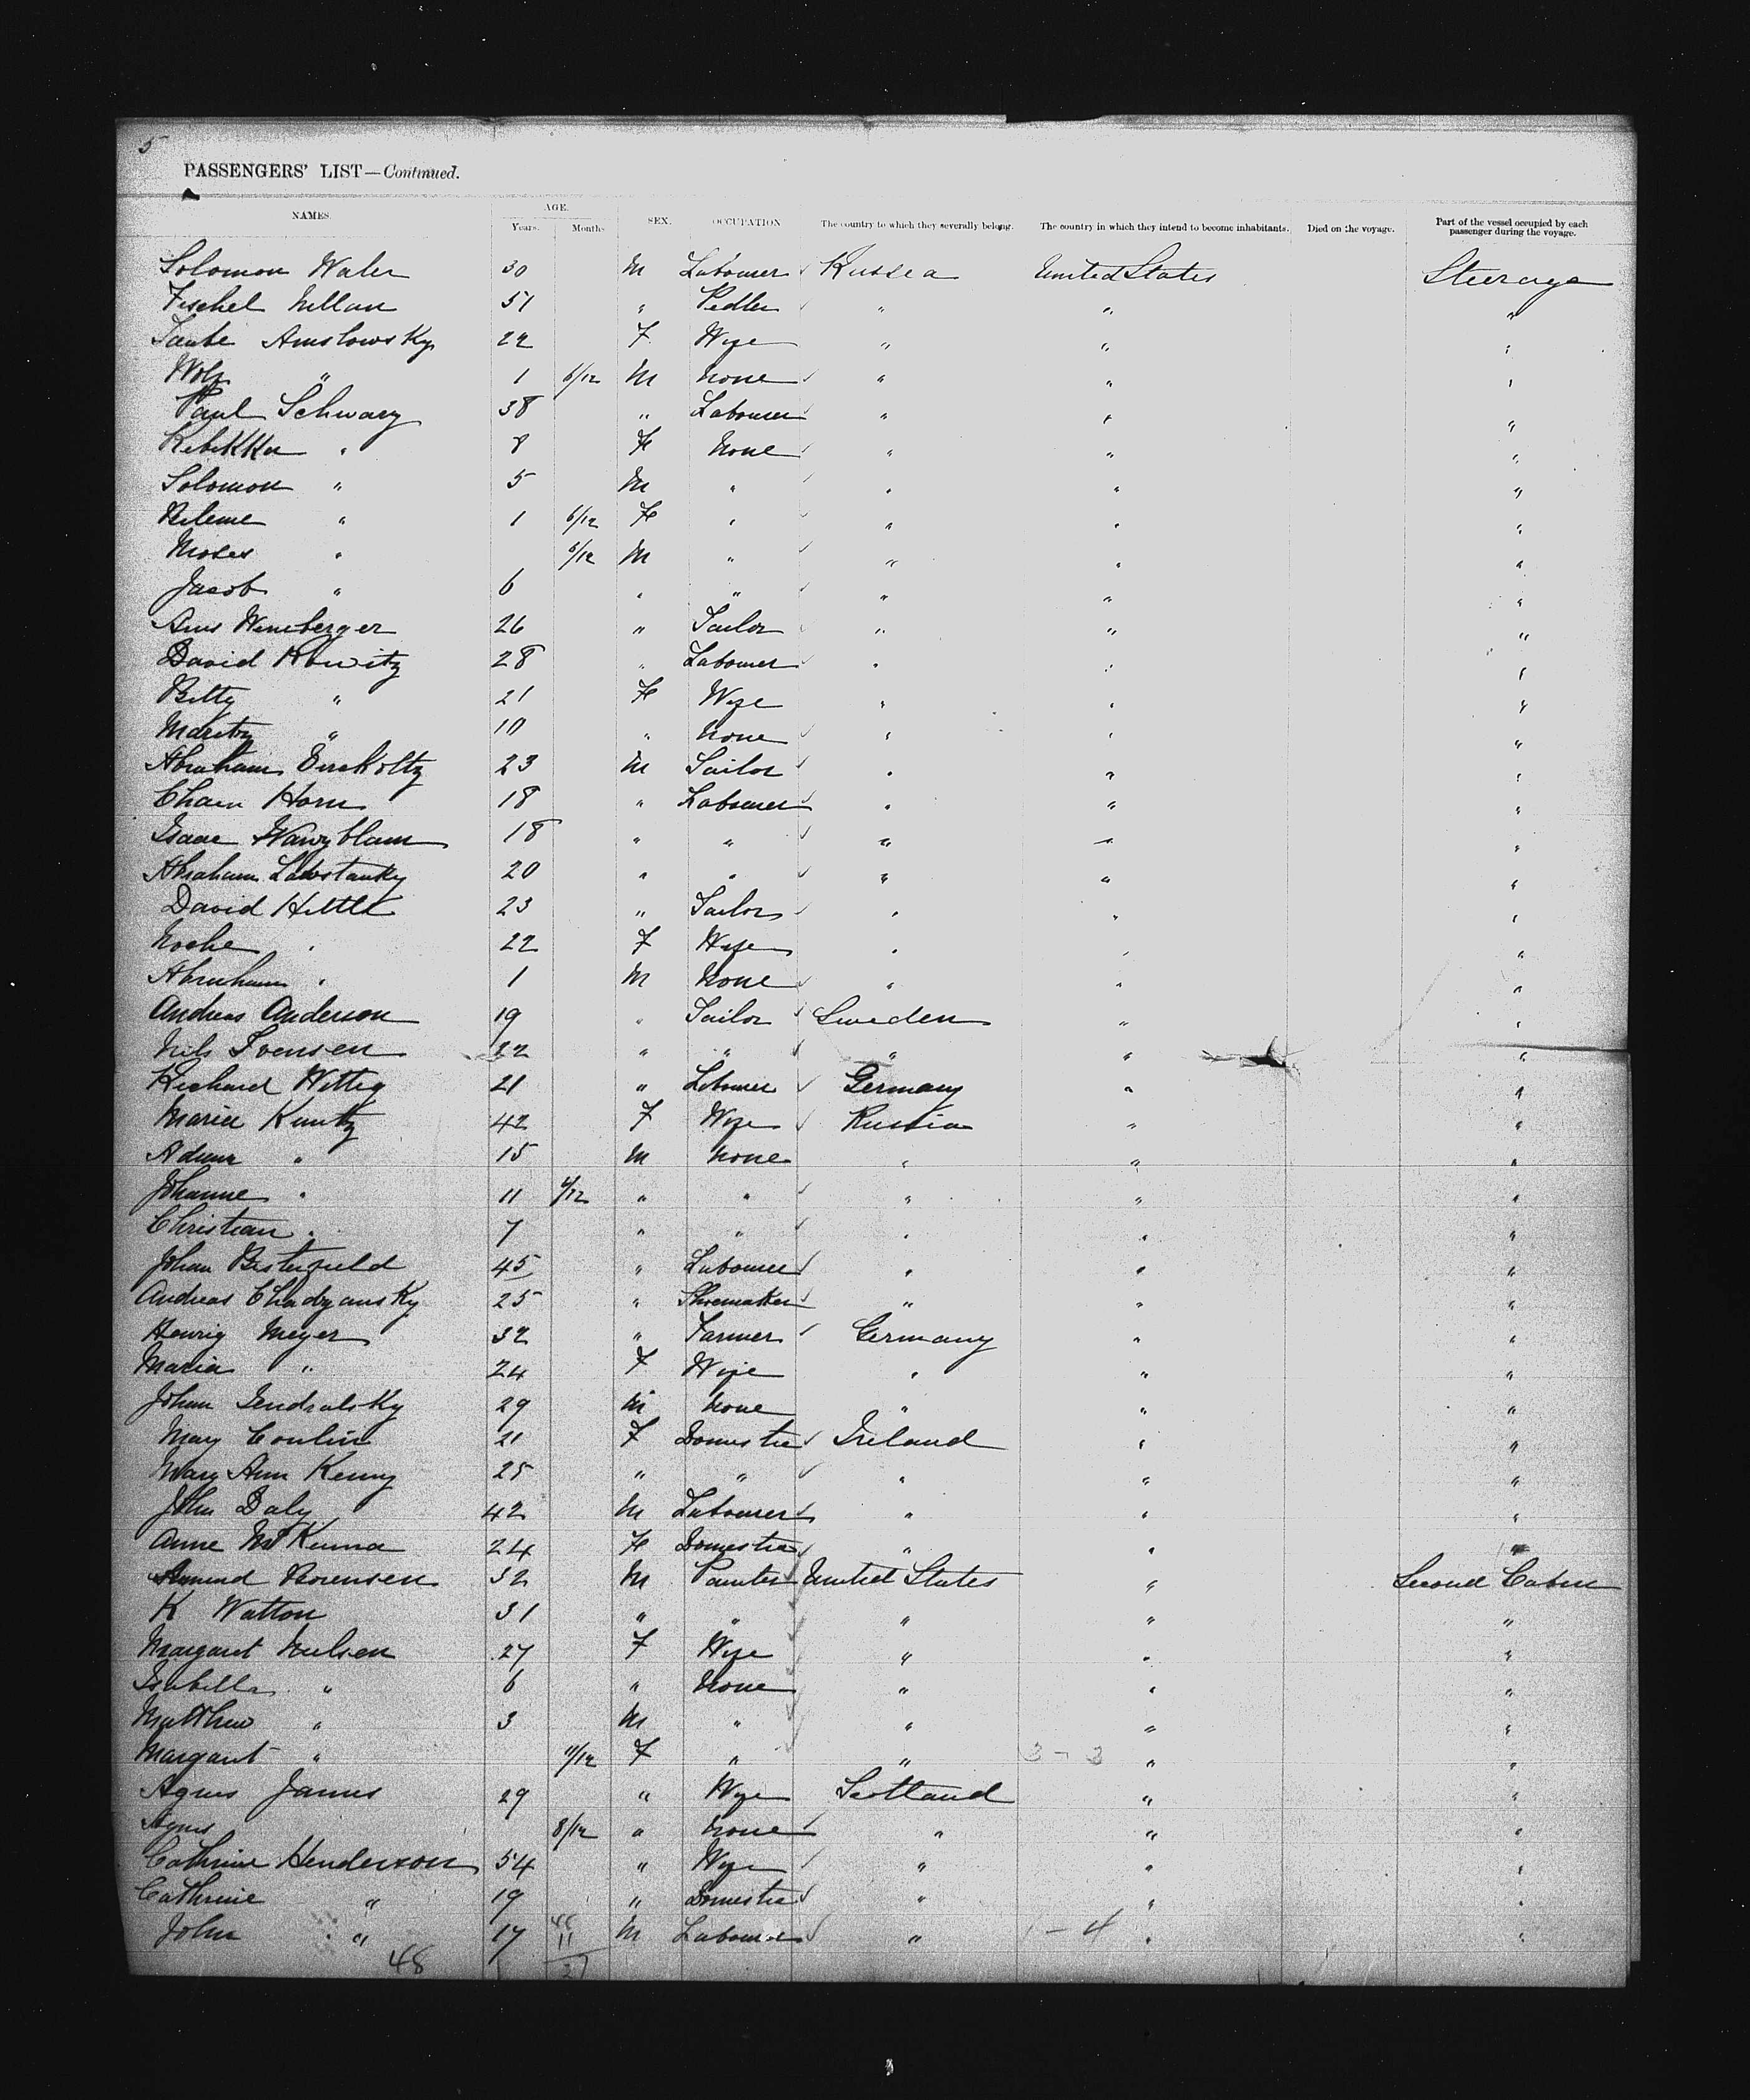 5
PASSENGERS' LIST—Continued.
NAMES. AGE. Years. Months SEX. OCCUPATION The country to which they severally belong. The country in which they intend to become inhabitants. Died on the voyage. Part of the vessel occupied by each passenger during the voyage.
Solomon Waler 30 M Labourer Russia United States Steerage
Fischel 51 " Pedler " " "
Taube Amslowsky 22 F Wife " " "
Wolf " 1 6/12 M None " " "
Paul Schwarz 38 " Labourer " " "
Rebekka " 8 F None " " "
Solomon " 5 M " " " "
" 1 6/12 F " " " "
Moses " 6/12 M " " " "
Jacob " 6 " " " " "
Weneberger 26 " Tailor " " "
David Kowitz 28 " Labourer " " "
Betty " 21 F Wife " " "
" 10 " None " " "
Abraham 23 M Tailor " " "
Horn 18 " Labourer " " "
Isaac 18 " " " " "
Abraham 20 " " " " "
David 23 " Tailor " " "
" 22 F Wife " " "
Abraham " 1 M None " " "
Andreas Anderson 19 " Tailor Sweden " "
Nils Svensen 22 " " " " "
Richard Wittig 21 " Labourer Germany " "
Maria Kuntz 42 F Wife Russia " "
" 15 M None " " "
Johanne " 11 " " " " "
Christian " 7 " " " " "
Johan Besterfield 45 " Labourer " " "
Andreas Chadzansky 25 " Shoemaker " " "
Henrig Meyer 32 " Farmer Germany " "
Maria " 24 F Wife " " "
Johan Gendralsky 29 M None " " "
Mary Conlin 21 F Domestic Ireland " "
Mary Ann Kenny 25 " " " " "
John Daly 42 M Labourer " " "
Anne McKenna 24 F Domestic " " "
Sorensen 32 M Painter United States " Second Cabin
K Watton 31 " " " " "
Margaret Neilsen 27 F Wife " " "
Isabella " 6 " None " " "
Matthew " 3 M " " " "
Margaret " 11/12 F " " 3-3 " "
Agnes James 29 " Wife Scotland " "
Agnes 8/12 " None " " "
Cathrine Henderson 54 " Wife " " "
Cathrine " 19 " Domestic " " "
John " 17 M Labourer " 1-4 " "
48